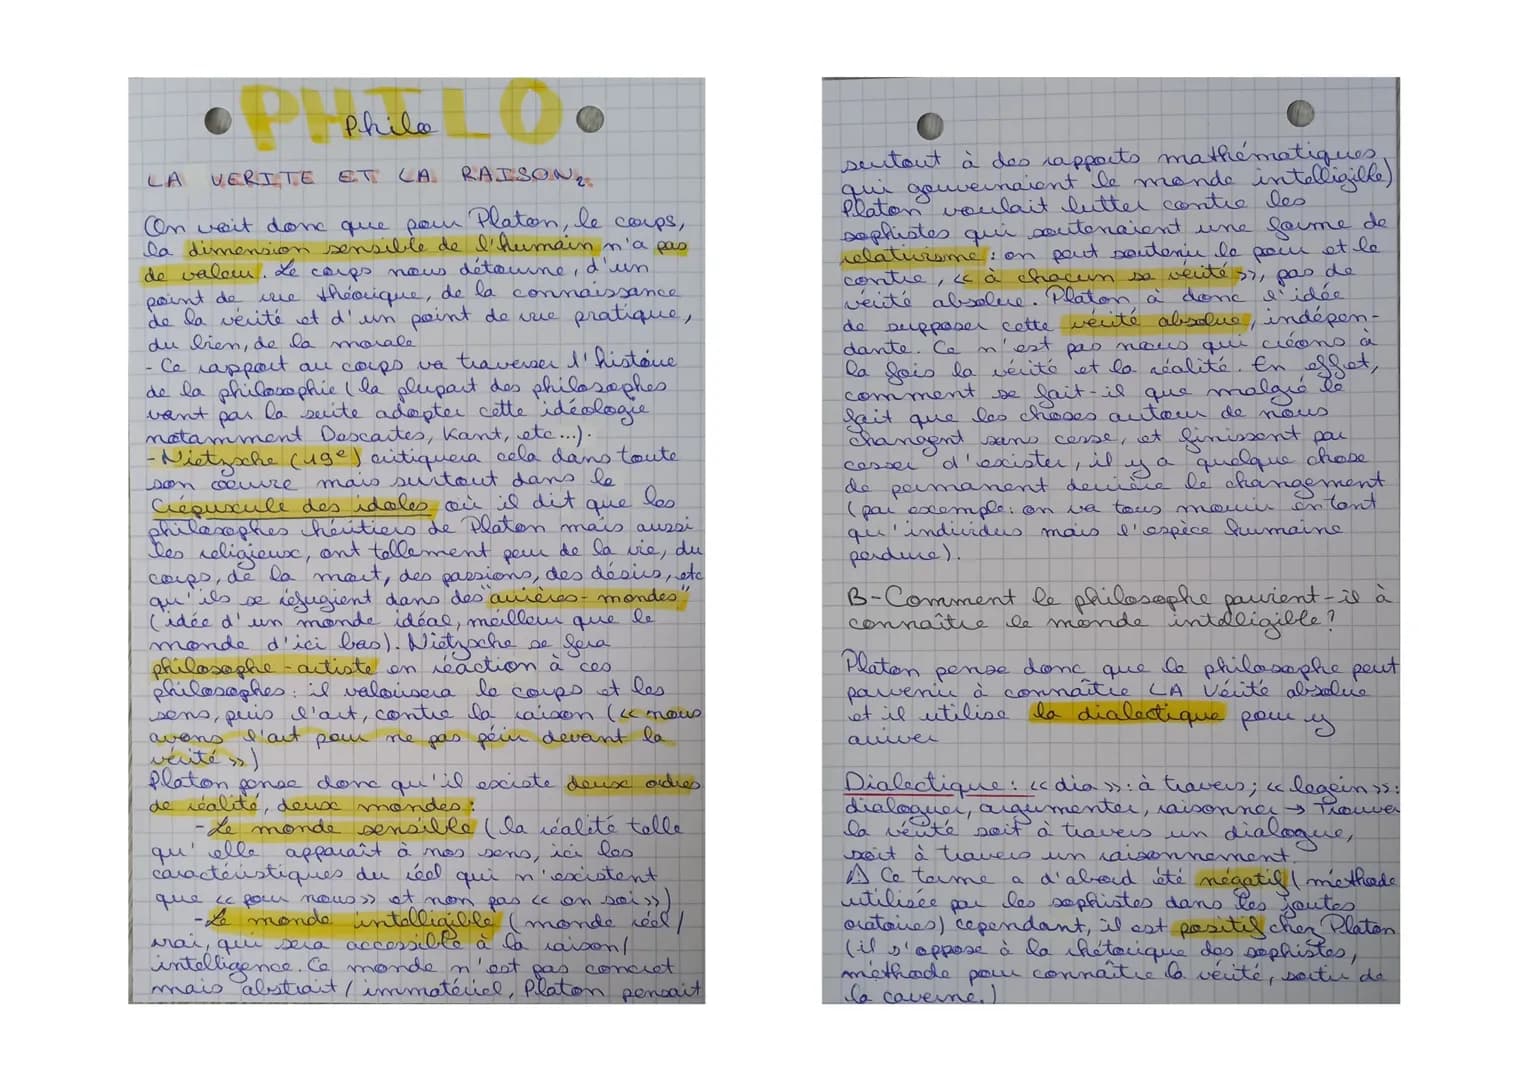 PHILO
Philo
LA VERITE ET LA RAISON
On voit donc que pour Platon, le corps,
la dimension sensible de l'humain n'a pas
de valeur. Le corps nous détourne, d'un
point de vue théorique, de la connaissance
de la vérité et d'un point de vue pratique,
du bien, de la morale
- Ce rapport au corps va traverser l'histoire
de la philosophie (la plupart des philosophes
vont par la suite adopter cette idéologie
notamment Descartes, Kant, etc...).
- Nietzsche (19e) critiquera cela dans toute
son oeuvre mais surtout dans le
Crépuscule des idoles où il dit que les
philosophes héritiers de Platon mais aussi
les religieux, ont tellement peur de la vie, du
corps, de la mort, des passions, des désirs, etc
qu'ils se réfugient dans des "arrières-mondes"
(idée d'un monde idéal, meilleur que le
monde d'ici bas). Nietzsche se fera
philosophe-artiste en réaction à ces
philosophes : il valorisera le corps et les
sens, puis l'art, contre la raison (« nous
avons l'art pour ne pas périr devant la
vérité »)
Platon pense donc qu'il existe deux ordres
de réalité, deux mondes :
- Le monde sensible (la réalité telle
qu'elle apparaît à nos sens, ici les
caractéristiques du réel qui n'existent
que « pour nous » et non pas « en soi »)
- Le monde intelligible (monde réel/
vrai, qui sera accessible à la raison/
intelligence. Ce monde n'est pas concret
mais abstrait/immatériel, Platon pensait
surtout à des rapports mathématiques
qui gouvernaient le monde intelligible)
Platon voulait lutter contre les
sophistes qui soutenaient une forme de
relativisme : on peut soutenir le pour et le
contre, « à chacun sa vérité », pas de
vérité absolue. Platon à donc l'idée
de supposer cette vérité absolue, indépen-
dante. Ce n'est pas nous qui créons à
la fois la vérité et la réalité. En effet,
comment se fait-il que malgré le
fait que les choses autour de nous
changent sans cesse, et finissent par
cesser d'exister, il y a quelque chose
de permanent derrière le changement
(par exemple: on va tous mourir en tant
qu'individus mais l'espèce humaine
perdure).
B-Comment le philosophe parvient-il à
connaître le monde intelligible?
Platon pense donc que le philosophe peut
parvenir à connaître LA Vérité absolue
et il utilise la dialectique pour y
arriver
Dialectique : « dia » : à travers; « legein » :
dialoguer, argumenter, raisonner → Trouver
la vérité soit à travers un dialogue,
soit à travers un raisonnement.
⚠ Ce terme a d'abord été négatif (méthode
utilisée par les sophistes dans les joutes
oratoires) cependant, il est positif chez Platon
(il s'oppose à la rhétorique des sophistes,
méthode pour connaître la vérité, sortir de
la caverne.)